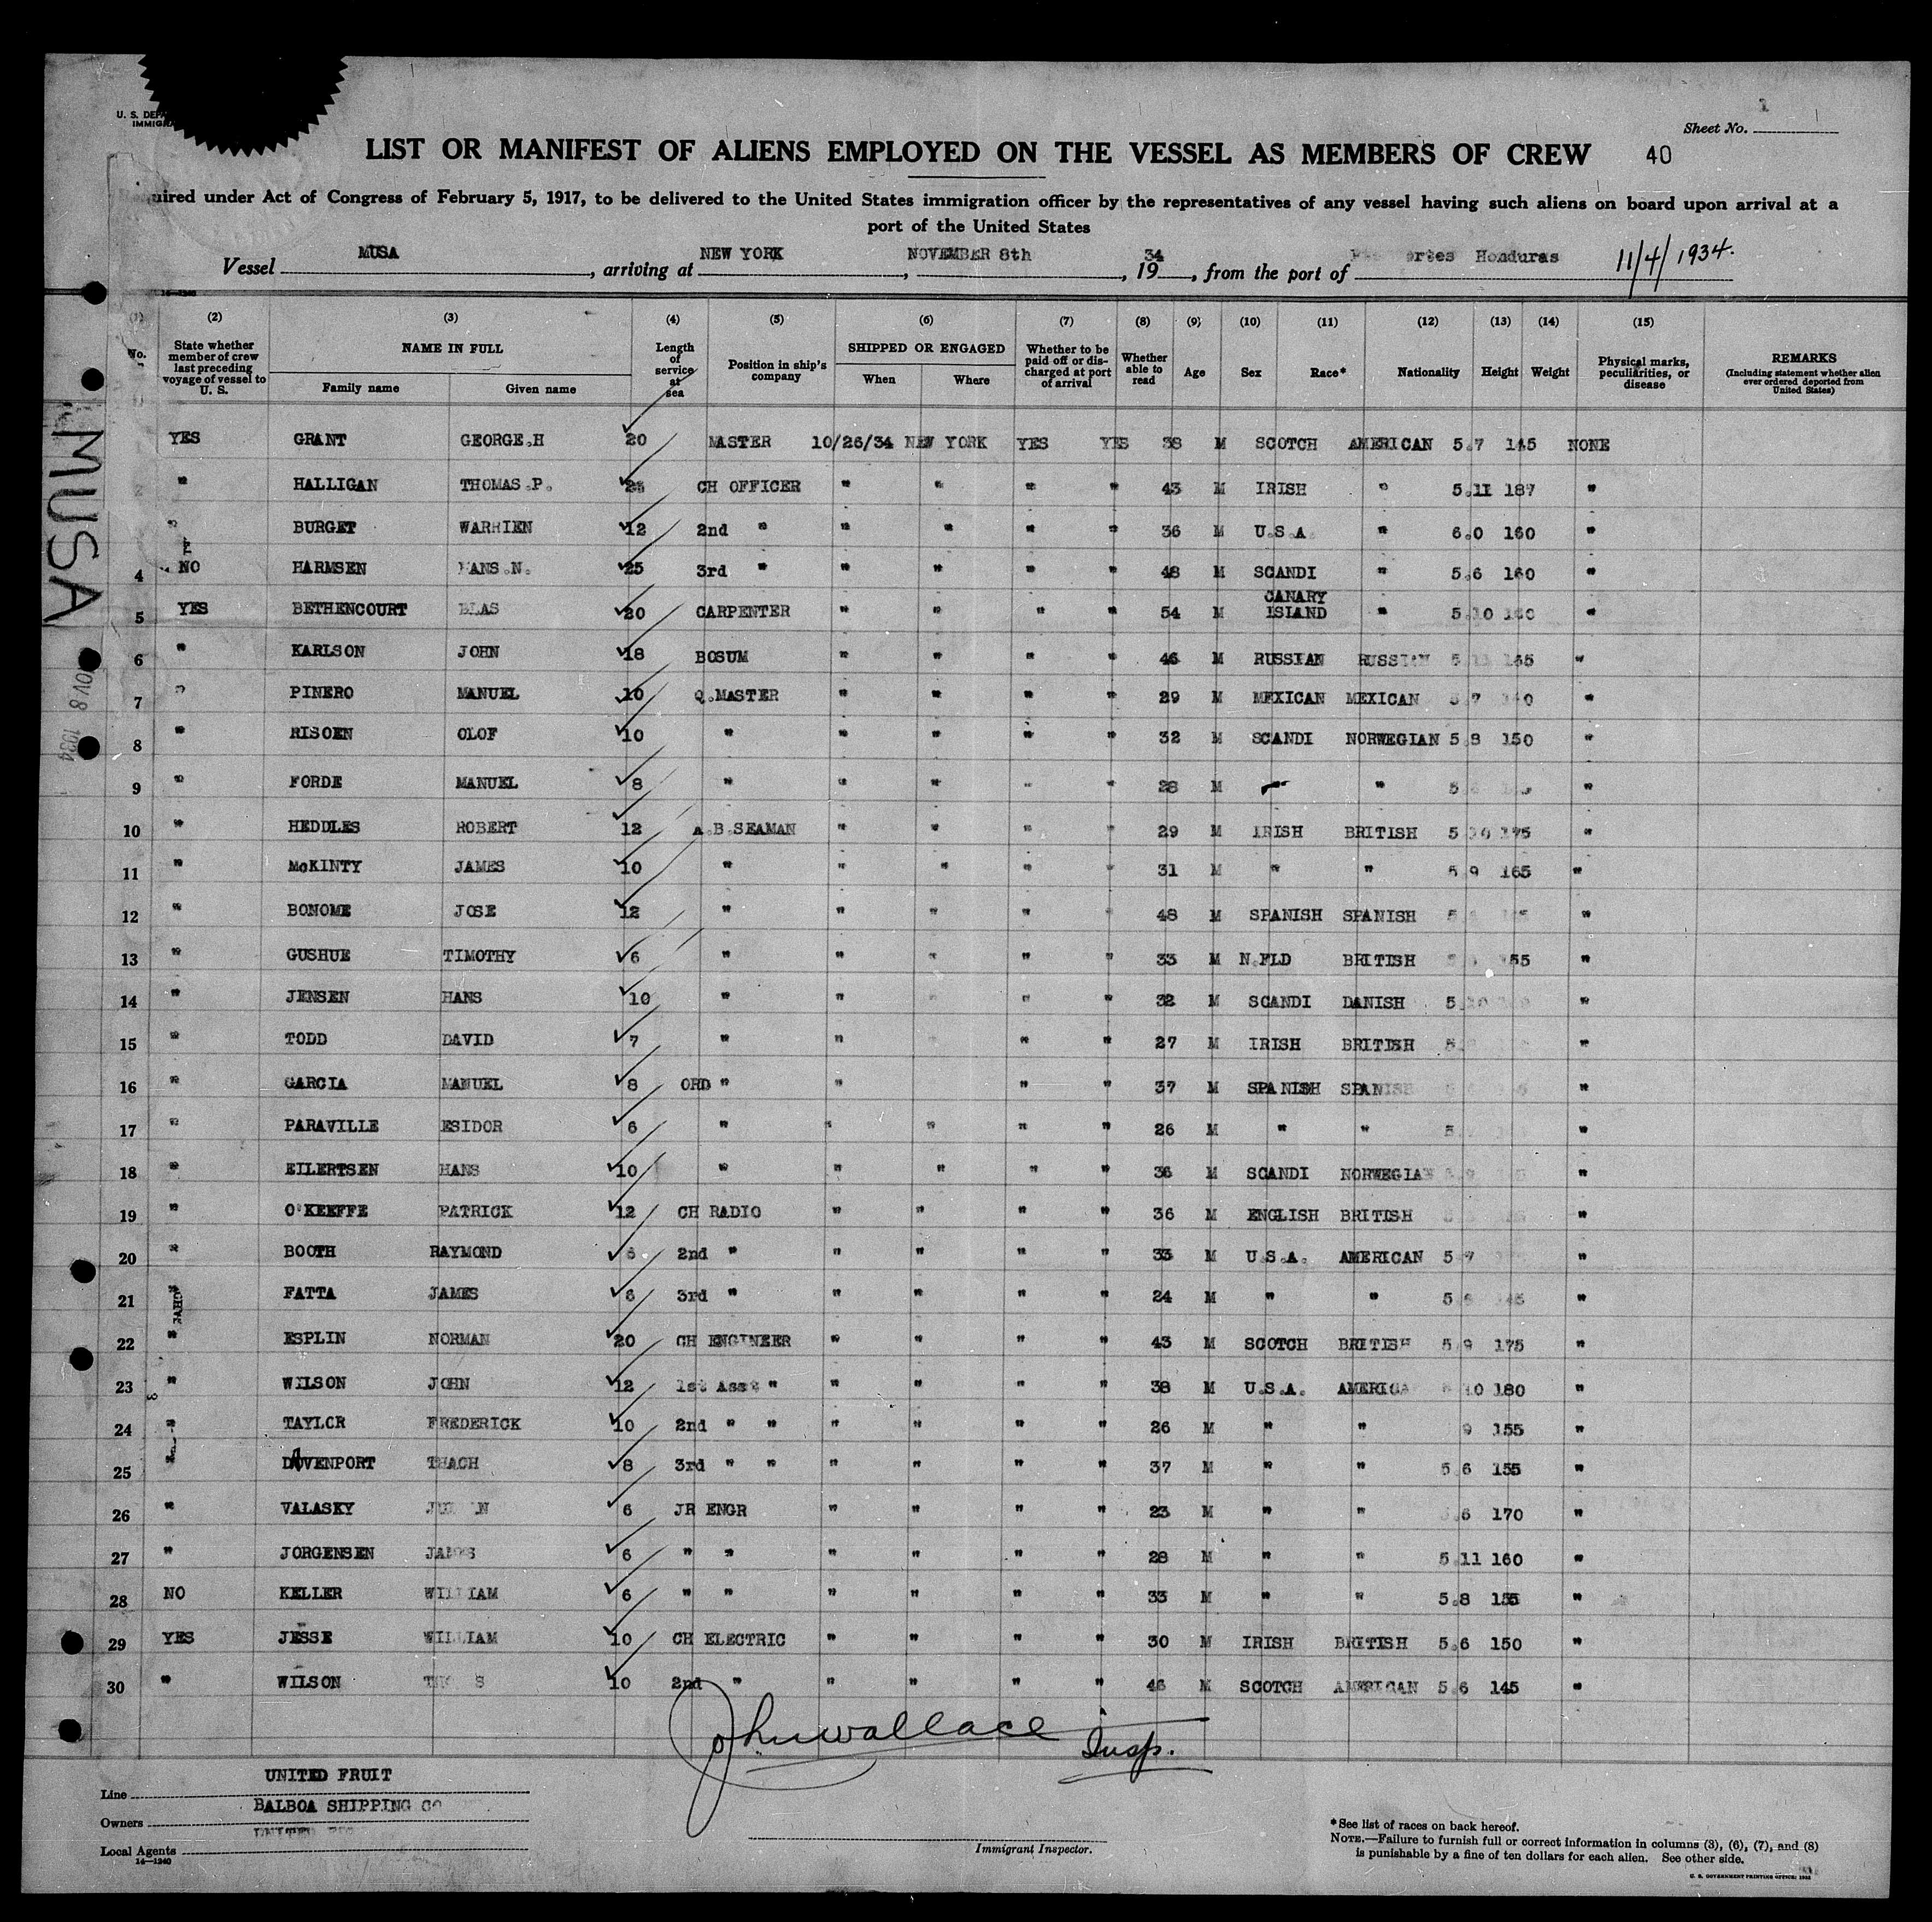 U. S. DEPA
IMMIGRA
1
Sheet No.
LIST OR MANIFEST OF ALIENS EMPLOYED ON THE VESSEL AS MEMBERS OF CREW 40
uired under Act of Congress of February 5, 1917, to be delivered to the United States immigration officer by the representatives of any vessel having such aliens on board upon arrival at a
port of the United States
Vessel MUSA, arriving at NEW YORK, NOVEMBER 8th, 19 34, from the port of Honduras 11/4/1934.
(1) (2) (3) (4) (5) (6) (7) (8) (9) (10) (11) (12) (13) (14) (15)
No. State whether member of crew last preceding voyage of vessel to U. S. NAME IN FULL Family name Given name Length of service at sea Position in ship's company SHIPPED OR ENGAGED When Where Whether to be paid off or discharged at port of arrival Whether able to read Age Sex Race* Nationality Height Weight Physical marks, peculiarities, or disease REMARKS (Including statement whether alien ever ordered deported from United States)
YES GRANT GEORGE.H 20 MASTER 10/26/34 NEW YORK YES YES 38 M SCOTCH AMERICAN 5.7 145 NONE
2 " HALLIGAN THOMAS.P. CH OFFICER " " " " 43 M IRISH " 5.11 187 "
" BURGET WARRIEN 12 2nd " " " " " 36 M U.S.A. " 6.0 160 "
4 NO HARMSEN HANS.N. 25 3rd " " " " " 48 M SCANDI " 5.6 160 "
5 YES BETHENCOURT BLAS 20 CARPENTER " " " " 54 M CANARY ISLAND " 5.10 "
6 " KARLSON JOHN 18 BOSUM " " " " 46 M RUSSIAN RUSSIAN 5 165 "
7 " PINERO MANUEL 10 Q.MASTER " " " " 29 M MEXICAN MEXICAN 7 "
8 " RISOEN OLOF 10 " " " " " 32 M SCANDI NORWEGIAN 5.8 150 "
9 " FORDE MANUEL 8 " " " " " 28 M " 5 "
10 " HEDDLES ROBERT 12 A.B.SEAMAN " " " " 29 M IRISH BRITISH 5 10 175 "
11 " McKINTY JAMES 10 " " " " " 31 M " " 5 9 165 "
12 " BONOME JOSE 12 " " " " " 48 M SPANISH SPANISH 5 "
13 " GUSHUE TIMOTHY 6 " " " " " 33 M N.FLD BRITISH 55 "
14 " JENSEN HANS 10 " " " " " 32 M SCANDI DANISH 5 10 "
15 " TODD DAVID 7 " " " " 27 M IRISH BRITISH 5. "
16 " GARCIA MANUEL 8 ORD " " " " 37 M SPANISH SPANISH "
17 " PARAVILLE ESIDOR 6 " " " " " 26 M " " 5 "
18 " EILERTSEN HANS 10 " " " " " 36 M SCANDI NORWEGIAN "
19 " O'KEEFFE PATRICK 12 CH RADIO " " " " 36 M ENGLISH BRITISH "
20 " BOOTH RAYMOND 2nd " " " " " 33 M U.S.A. AMERICAN 5 7 "
21 " FATTA JAMES 6 3rd " " " " " 24 M " " 5 "
22 " ESPLIN NORMAN 20 CH ENGINEER " " " " 43 M SCOTCH BRITISH 5 9 175 "
23 " WILSON JOHN 12 1st Asst " " " " " 38 M U.S.A. AMERICA 10 180 "
24 " TAYLOR FREDERICK 10 2nd " " " " " " 26 M " " 9 155 "
25 " DAVENPORT THACH 8 3rd " " " " " " 37 M " " 5 6 155 "
26 " VALASKY 6 JR ENGR " " " " 23 M " " 6 170 "
27 " JORGENSEN JAMES 6 " " " " " " 28 M " " 5.11 160 "
28 NO KELLER WILLIAM 6 " " " " " " 33 M " " 5.8 155 "
29 YES JESSE WILLIAM 10 CH ELECTRIC " " " " 30 M IRISH BRITISH 5.6 150 "
30 " WILSON 10 2nd " " " " " 46 M SCOTCH AMERICAN 5.6 145 "
MUSA
NOV 8 1934
John Wallace
Insp.
Line UNITED FRUIT
Owners BALBOA SHIPPING CO
Local Agents UNITED
14—1240
Immigrant Inspector.
*See list of races on back hereof.
NOTE.—Failure to furnish full or correct information in columns (3), (6), (7), and (8)
is punishable by a fine of ten dollars for each alien. See other side.
U. S. GOVERNMENT PRINTING OFFICE: 1932